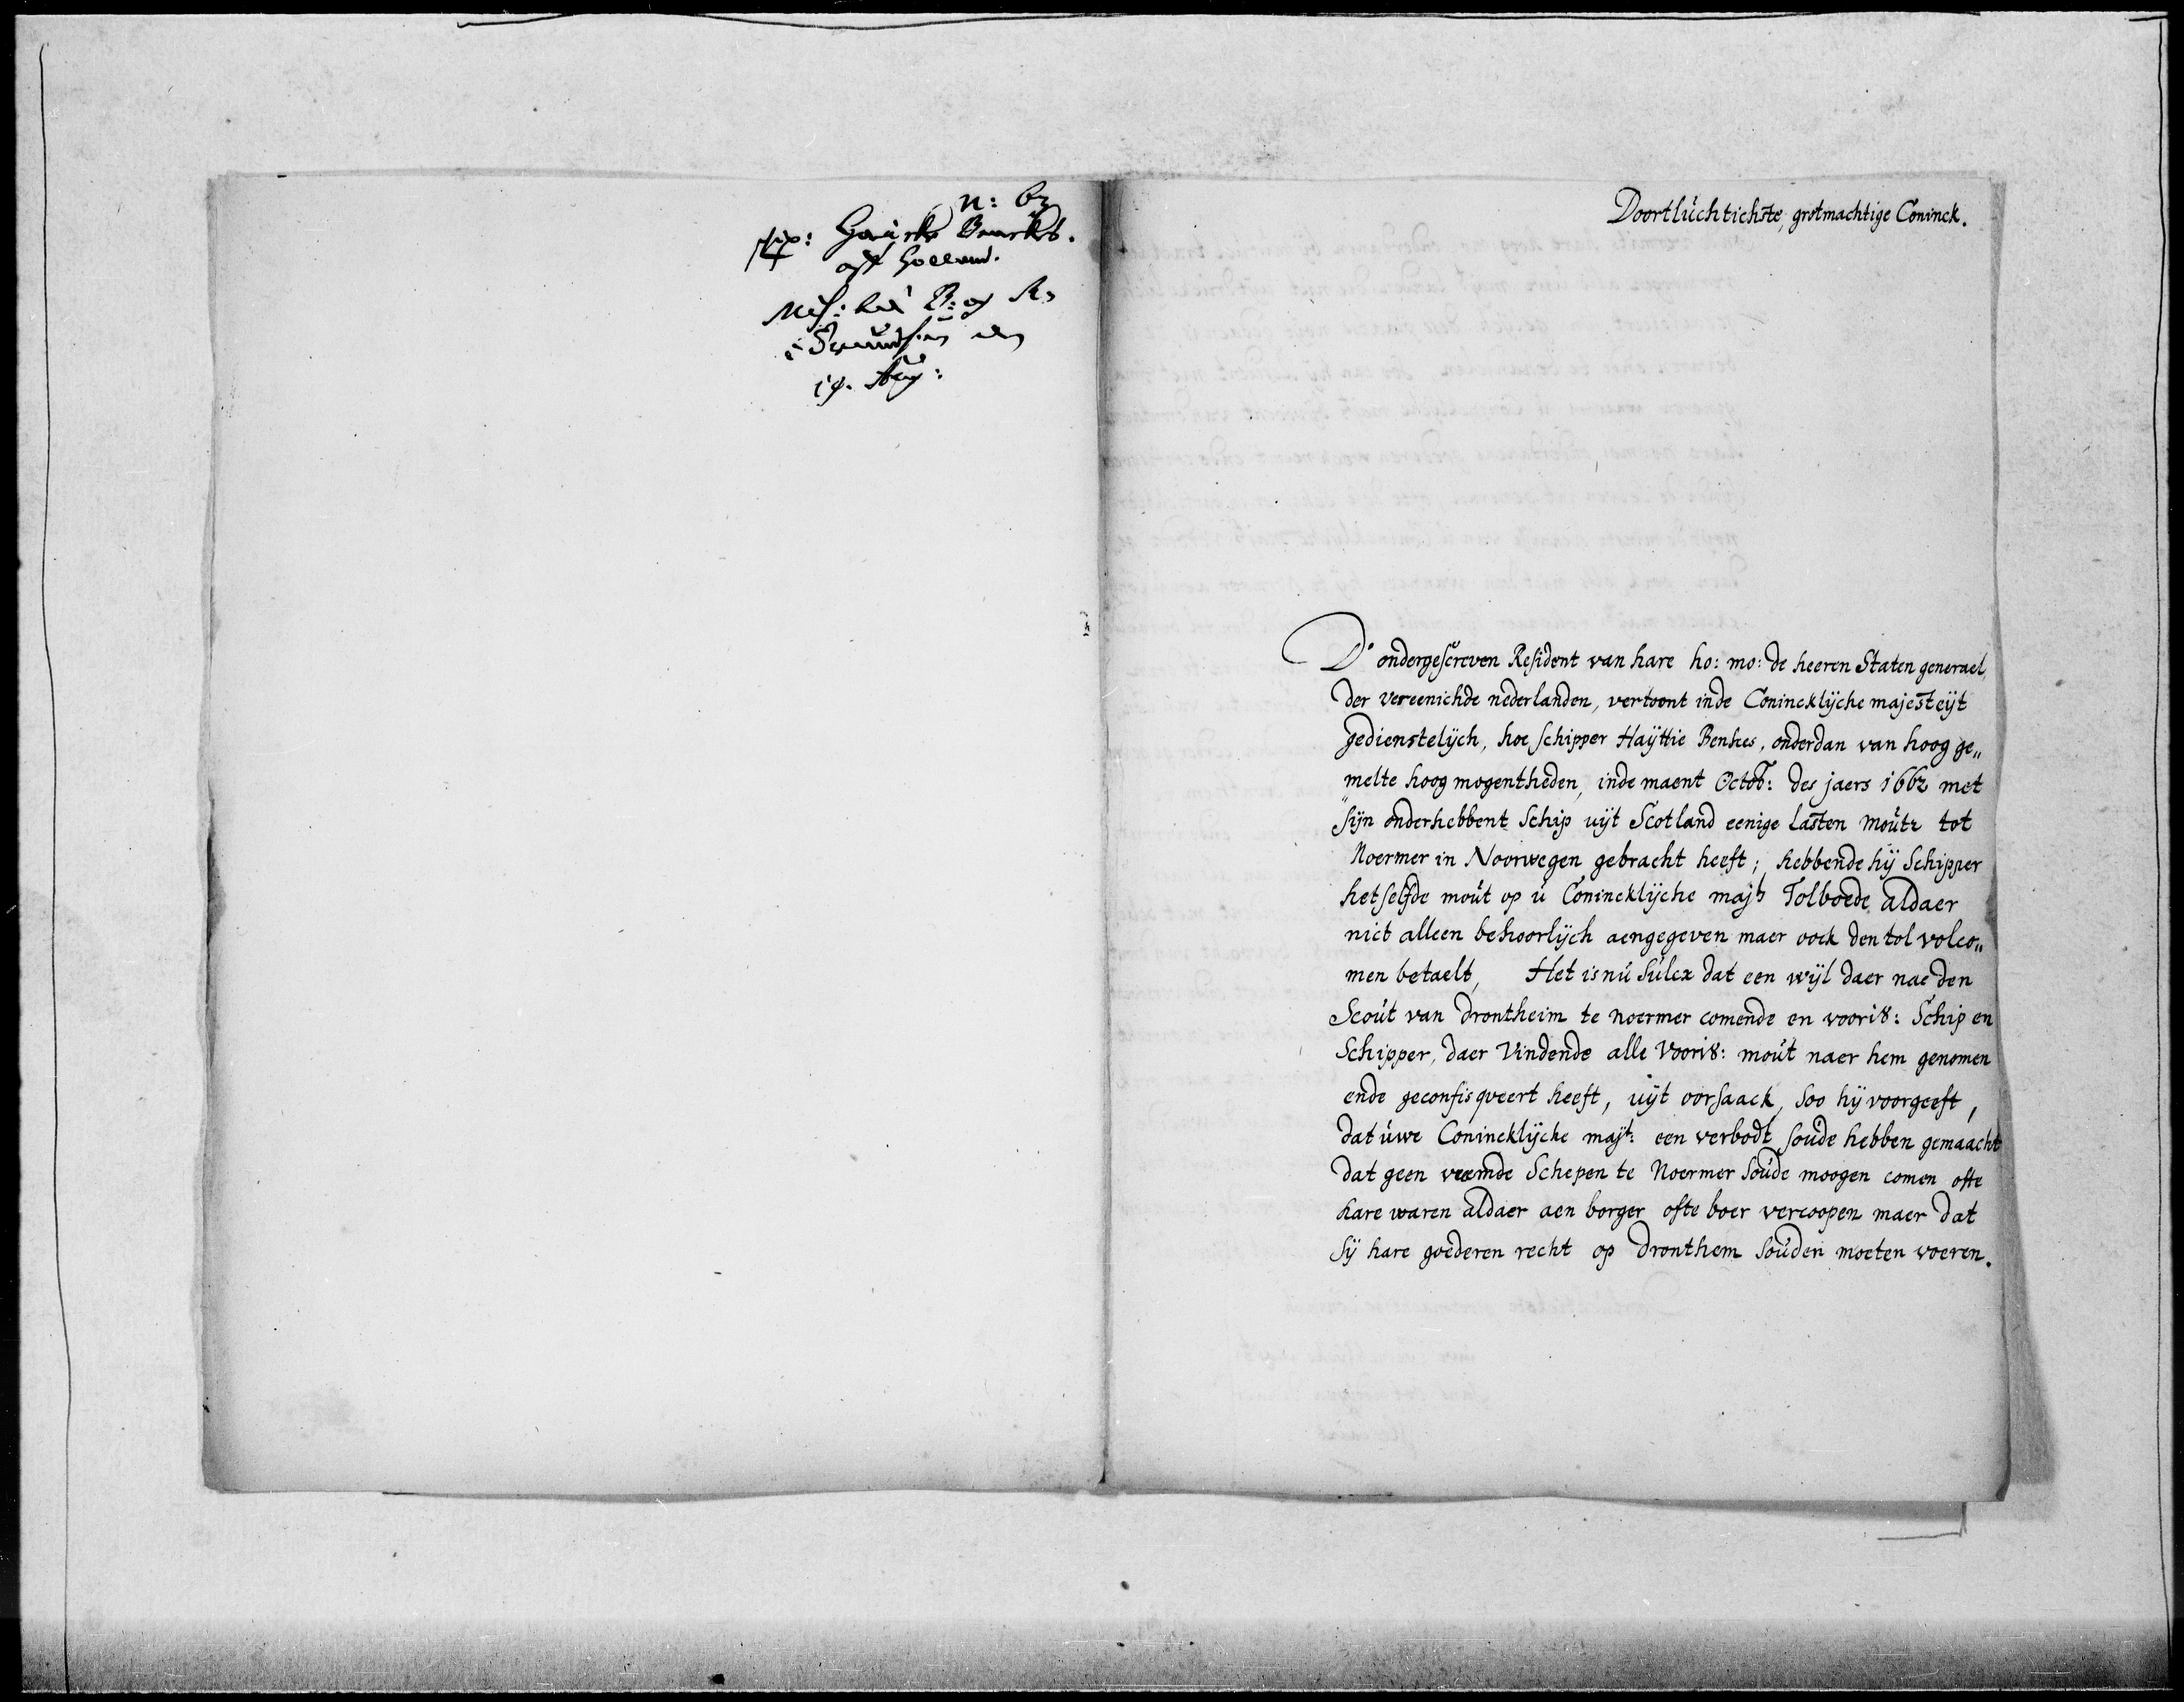 n: 63
Doortluchtichste, grotmachtige Coninck.
D' ondergescreven Resident van hare ho: mo: de heeren Staten generael,
der vereenichde nederlanden, vertoont inde Conincklÿche majesteÿt
gedienstelÿch, hoe schipper Haÿttie Benkes, onderdan van hoog ge„
melte hoog mogentheden, inde maent Octob: des jaers 1662 met
sijn onderhebbent Schip uÿt Scotland eenige Lasten moutz tot
Noermer in Noorwegen gebracht heeft; hebbende hÿ Schipper
het selfde mout op u Conincklÿche majts Tolboede aldaer
niet alleen behoorlÿch aengegeven maer oock den tol volco„
men betaelt, Het is nu sulcx dat een wÿl daer nae den
Scout van drontheim te noermer comende en vooris: Schip en
Schipper, daer vindende alle vooris: mout naer hem genomen
ende geconfisqveert heeft, uÿt oorsaack, soo hÿ voorgeeft,
dat uwe Conincklÿche majt: een verbodt soude hebben gemaacht
dat geen vremde Schepen te Noermer soude moogen comen ofte
hare waren aldaer aen borger ofte boer vercoopen maer dat
sÿ hare goederen recht op dronthem souden moeten voeren.